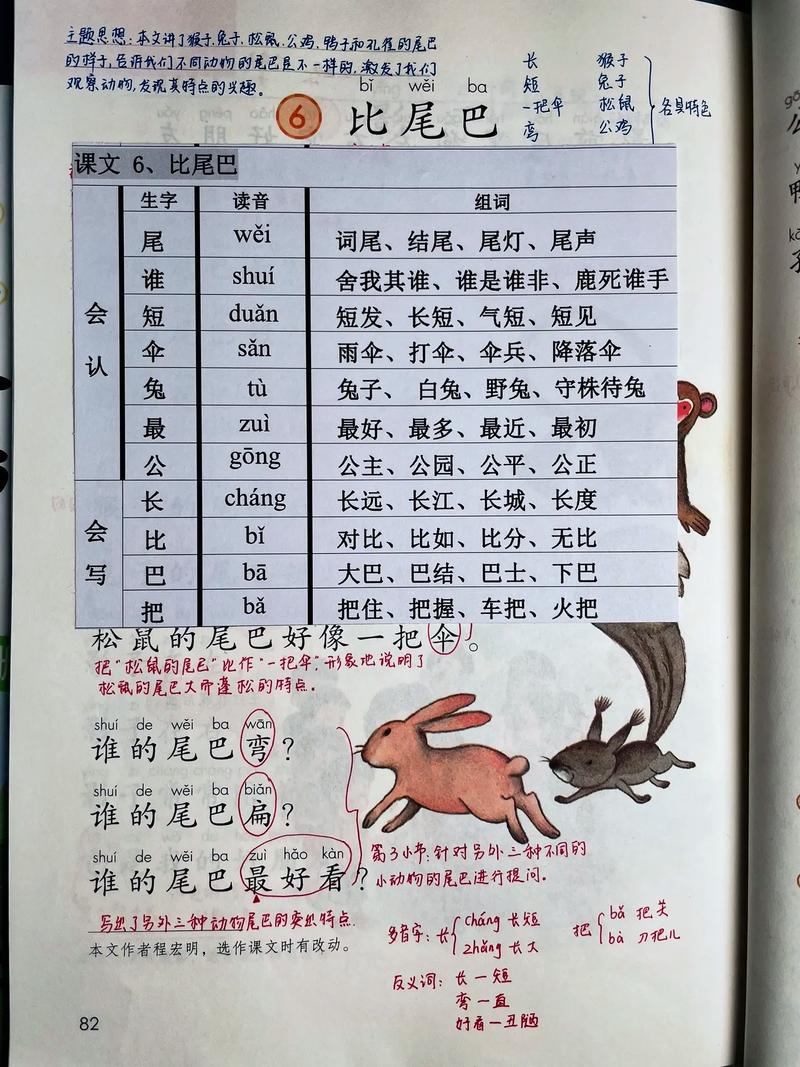 主题思想:本文讲了猴子、兔子、松鼠、公鸡、鸭子和孔雀的尾巴
的样子,告诉我们不同动物的尾巴是不一样的,激发了我们
观察动物,发现其特点的兴趣。
长 猴子
短 兔子
一把伞 松鼠
弯 公鸡
各具特色
bǐ wěi ba
6 比尾巴
课文 6、比尾巴
生字 读音 组词
会认
尾 wěi 词尾、结尾、尾灯、尾声
谁 shuí 舍我其谁、谁是谁非、鹿死谁手
短 duǎn 短发、长短、气短、短见
伞 sǎn 雨伞、打伞、伞兵、降落伞
兔 tù 兔子、 白兔、野兔、守株待兔
最 zuì 最好、最多、最近、最初
公 gōng 公主、公园、公平、公正
会写
长 cháng 长远、长江、长城、长度
比 bǐ 对比、比如、比分、无比
巴 bā 大巴、巴结、巴士、下巴
把 bǎ 把住、把握、车把、火把
松鼠的尾巴好像一把伞。
把“松鼠的尾巴”比作“一把伞”,形象地说明了
松鼠的尾巴大而蓬松的特点。
shuí de wěi ba wān
谁的尾巴弯?
shuí de wěi ba biǎn
谁的尾巴扁?
shuí de wěi ba zuì hǎo kàn
谁的尾巴最好看?
第3小节:针对另外三种不同的
小动物的尾巴进行提问。
写出了另外三种动物尾巴的突出特点.
本文作者程宏明,选作课文时有改动。
多音字: 长 cháng 长短
zhǎng 长大
把 bǎ 把关
bà 刀把儿
反义词: 长—短
弯—直
好看—丑陋
82